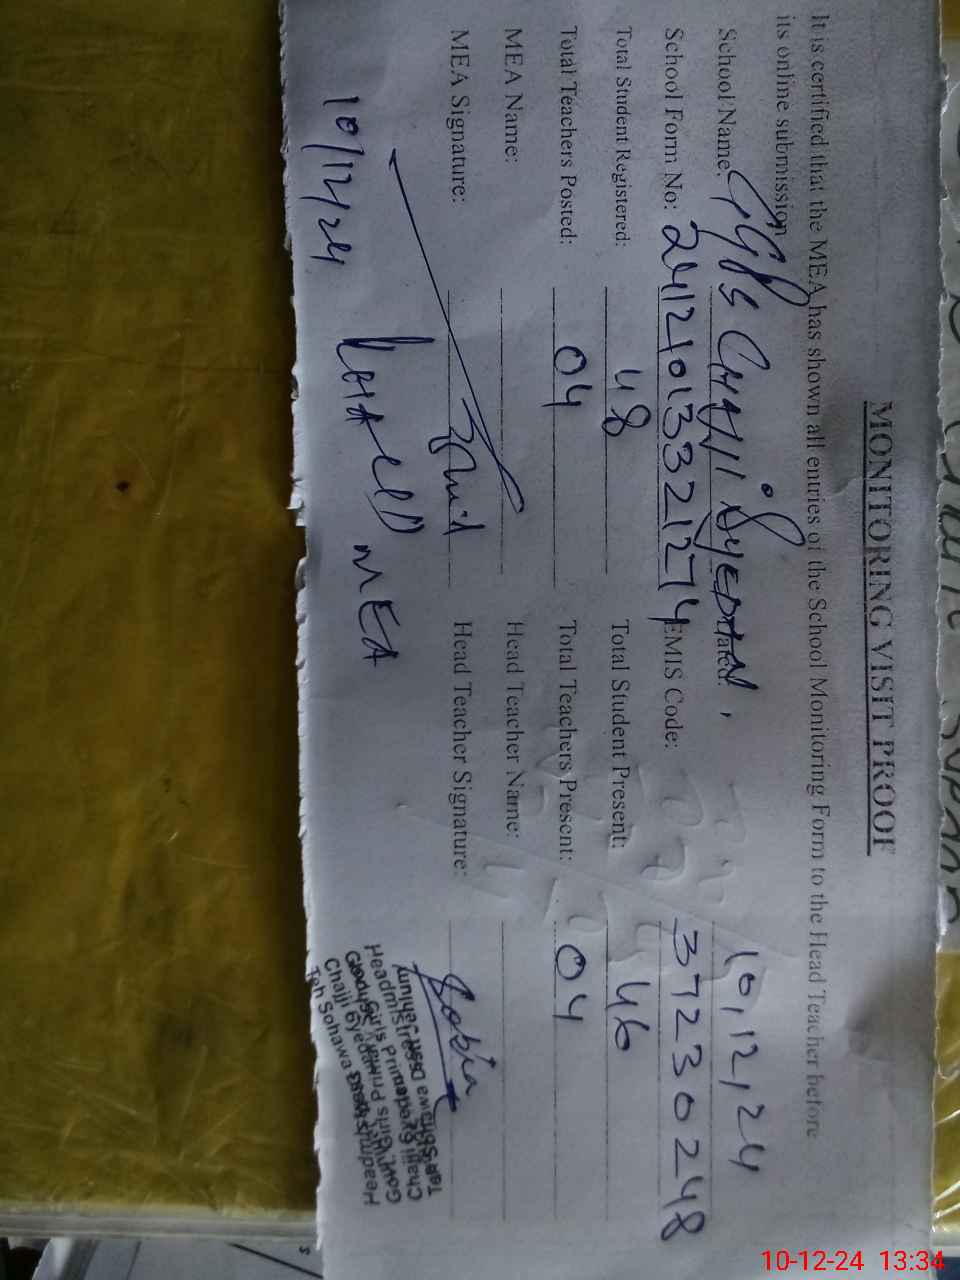 MONITORING VISIT PROOF
It is certified that the MEA has shown all entries of the School Monitoring Form to the Head Teacher before
its online submission
School Name: GGPS CHAJJI Syedan. Dated: 10,12,24
School Form No: EMIS Code: 37230248
Total Student Registered: 48 Total Student Present: 46
Total Teachers Posted: 04 Total Teachers Present: 04
MEA Name: Head Teacher Name:
MEA Signature: Head Teacher Signature: Sobia
KHALID MEA
10/12/24
Headmistress
Chajji Syedan
Teh Sohawa
10-12-24 13:34